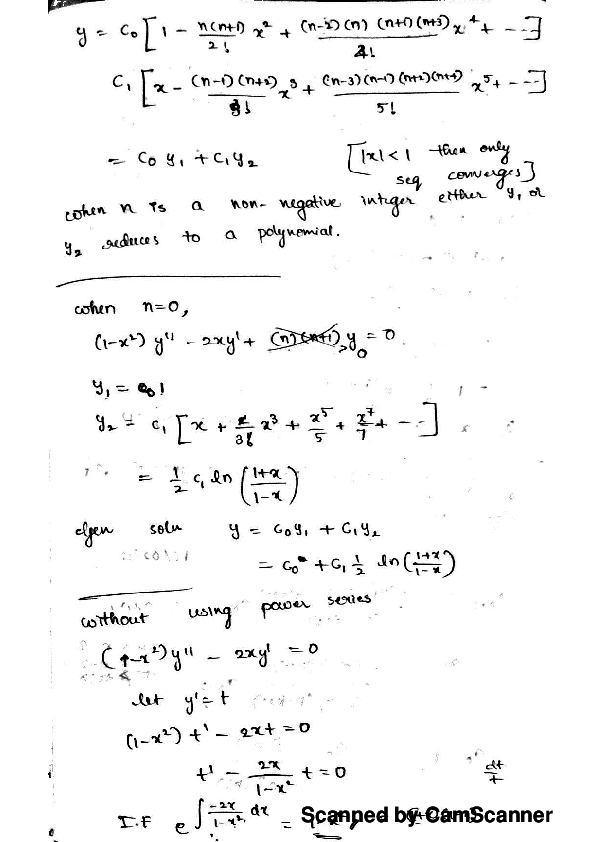 y = C₀ [ 1 - n(n+1)/2! x² + (n-2)(n)(n+1)(n+3)/4! x⁴ + --- ]
C₁ [ x - (n-1)(n+2)/3! x³ + (n-3)(n-1)(n+2)(n+4)/5! x⁵ + --- ]
= C₀ y₁ + C₁ y₂ [ |x| < 1 then only
seq converges ]
when n is a non-negative integer either y₁ or
y₂ reduces to a polynomial.
when n=0,
(1-x²) y'' - 2xy' + (n)(n+1) y = 0
0
y₁ = 1
y₂ = C₁ [ x + x³/3 + x⁵/5 + x⁷/7 + --- ]
= 1/2 C₁ ln ( (1+x)/(1-x) )
soln y = C₀y₁ + C₁y₂
= C₀ + C₁ 1/2 ln ( (1+x)/(1-x) )
without using power series
(1-x²) y'' - 2xy' = 0
let y' = t
(1-x²) t' - 2xt = 0
t' - 2x/(1-x²) t = 0 dt/t
I.F e^∫ -2x/(1-x²) dx =
Scanned by CamScanner